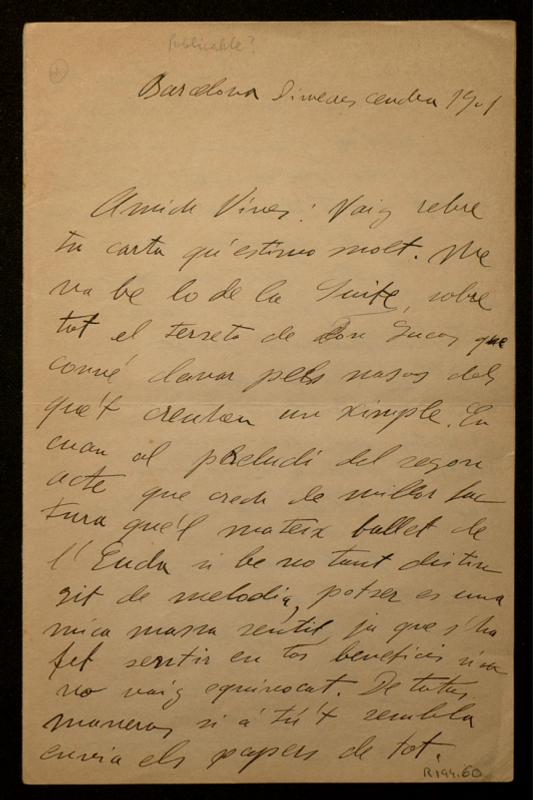 Publicable?
Barcelona Dimecres cendra 1901
Amich Vives: Vaig rebre
tu carta qu'estimo molt. Me
va be lo de la Suite, sobre
tot el terceto de don Lucas que
convé clavar pels nasos dels
que't creuhen un ximple. En
cuan al preludi del segon
acte que crech de millor fac
tura que'l mateix ballet de
l'Euda si be no tant distin
git de melodia, potser es una
mica massa sentit, ja que s'ha
fet sentir en tos beneficis si
no vaig equivocat. De totas
maneras si á tú't sembla
envia els papers de tot.
R194.60